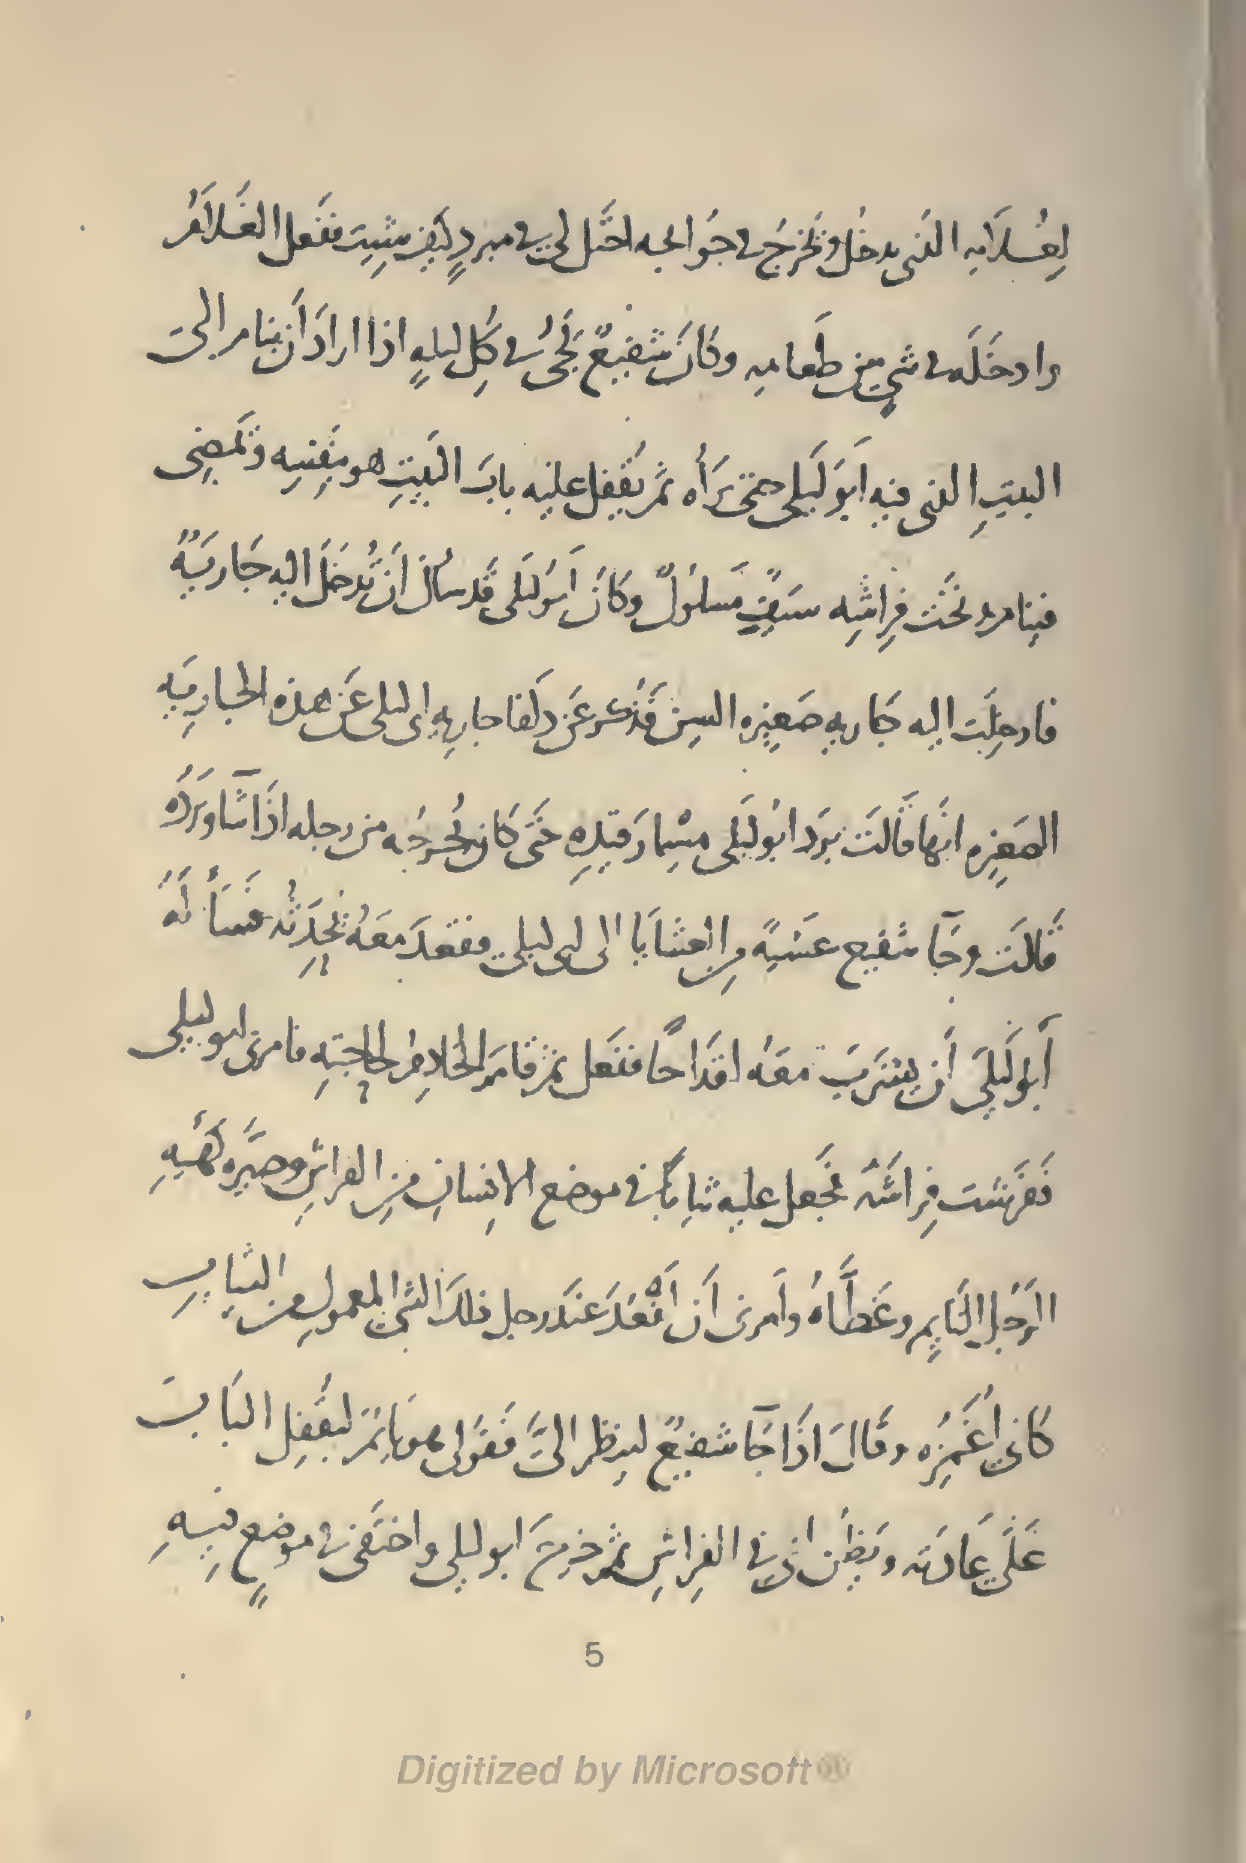 لِغُـلَامِه الذى يدخُل ويَخرُج فى حَوَائجه احتَل لى فى مبردٍ كَيف شِيتَ ففَعل الغُلَامُ
وادخَلَه فى شىٍ مِن طَعامِه وكَانَ شَفيعٌ يَجىُ فى كِل ليلهٍ اذا ارادَ أن ينام الى
البيتِ الذى فيه أبَو لَيلى حتى يَرَاُه ثم يُقفِل عليِه بابَ البَيتِ هو بِنَفسِه ويَمضِى
فينام وتَحَت فِراشِه سَيفٌ مَسلوُلٌ وكَانَ أبَوُ لَيلَى قَد سأل أنَ تُدخَلَ اليه جَاريَةٌ
فادخِلَت اليه جَاريه صَغِيره السِن فَذُكر عَن دلَفا جاريه ابى ليلى عَن هذه الجَاريَه
الصَغِيره انهَا قَالَت بَرد ابُو لَيلَى مسِمار قَيدِه حَتَى كَان يُخرجُه من رجله اذَا شَآ ويَرُدُه
قَالَت وجَآ شفيع عَشيَهً من العشايَا الى ابى ليلى فقعدَ معَهُ يُحَدِثُه فَسَأَلَهُ
أبُو لَيلَى أن يشرَبَ معَه اقدَاحًا ففَعل ثمَ قَامَ الخَادِم لحاجَتِه فامرنى ابو ليلى
فَفَرشت فِراشَهُ فجَعل عليه ثيابًا فى موضع الانسانِ مِن الفراشِ وصَيَّره كَهَيهِ
الرَجُل النَايِم وغَطَّاهُ وأمرنى أن أقعُدَ عند رجل ذلك الشى المعمولِ من الثيابِ
كَانى أغمِزُه وقَالَ اذَا جَآ شفيعٌ لينظر الىَّ فَقوَلى هو نَايمٌ ليقُفِل البَاب
عَلَى عَادَته ويَظُن انى فى الفِراشِ ثم خرجَ ابو ليلى واختَفى فى موضعٍ فيهِ
5
Digitized by Microsoft®